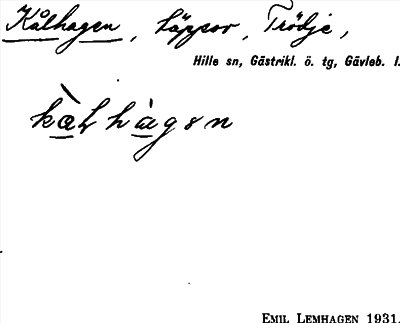 Kålhagen, Läppor, Trödje,
Hille sn, Gästrikl. ö. tg, Gävleb. l.
kàL hàgen
EMIL LEMHAGEN 1931.